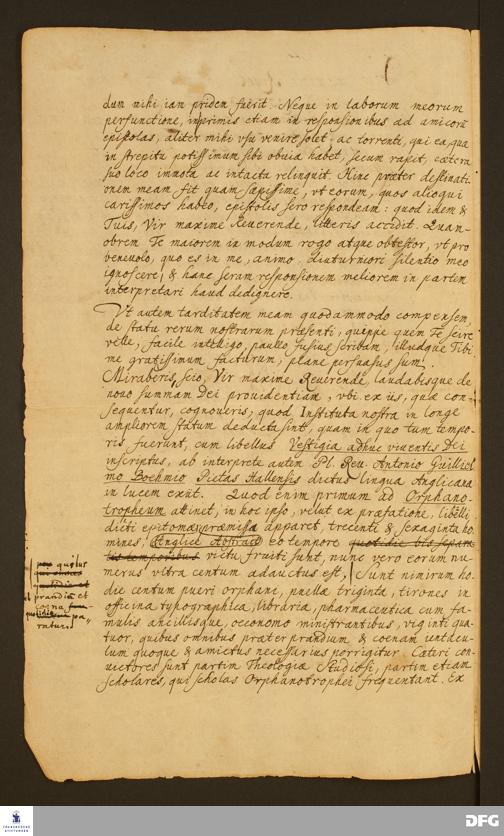 dum mihi iam pridem fuerit. Neque in laborum meorum
perfunctione, inprimis etiam in responsionibus ad amicorū
epistolas, aliter mihi usu venire solet, ac torrenti, qui ea, quæ
in strepitu potissimum sibi obvia habet, secum rapit, cætera
suo loco immota ac intacta relinquit. Hinc præter destinati-
onem meam fit quam sæpissime, ut eorum, quos alioqui
carissimos habeo, epistolis sero respondeam: quod idem &
Tuis, Vir maxime Reuerende, litteris accidit. Quam-
obrem Te maiorem in modum rogo atque obtestor, ut pro
beneuolo, quo es in me, animo, diuturniori silentio meo
ignoscere, & hanc seram responsionem meliorem in partem
interpretari haud dedignere.
Ut autem tarditatem meam quodammodo compensem,
de statu rerum nostrarum præsenti, quippe quem Te scire
velle, facile intelligo, paullo fusius scribam, illudque Tibi
me gratissimum facturum, plane persuasus sum.
Miraberis, scio, Vir maxime Reuerende, laudabisque de
nouo summam Dei prouidentiam, ubi ex iis, quæ con-
sequentur, cognoueris, quod Instituta nostra in longe
ampliorem statum deducta sint, quam in quo tum tempo-
ris fuerunt, cum libellus Vestigia adhuc viuentis Dei
inscriptus, ab interprete autem Pl. Reu. Antonio Guiliel-
mo Boehmio Pietas Hallensis dictus lingua Anglicana
in lucem exiit. Quod enim primum ad Orphano-
tropheum attinet, in hoc ipso, velut ex præfatione, libelli
dicti epitomæ præmissa apparet, trecenti & sexaginta ho-
mines, (Anglicè Abstract) eo tempore quotidie bis separa-
tis temporibus victu fruiti sunt, nunc vero eorum nu-
merus ultra centum adauctus est. Sunt nimirum ho-
die centum pueri orphani, puellæ triginta, tirones in
officina typographica, libraria, pharmaceutica cum fa-
mulis ancillisque, oeconomo ministrantibus, viginti qua-
tuor, quibus omnibus præter prandium & coenam ientacu-
lum quoque & amictus necessarius porrigitur. Cæteri con-
uictores sunt partim Theologiæ Studiosi, partim etiam
scholares, qui scholas Orphanotrophei frequentant. Ex
quibus
prandiũ et
coena
quotidie pa-
ratur.
FRANCKESCHE
STIFTUNGEN
DFG